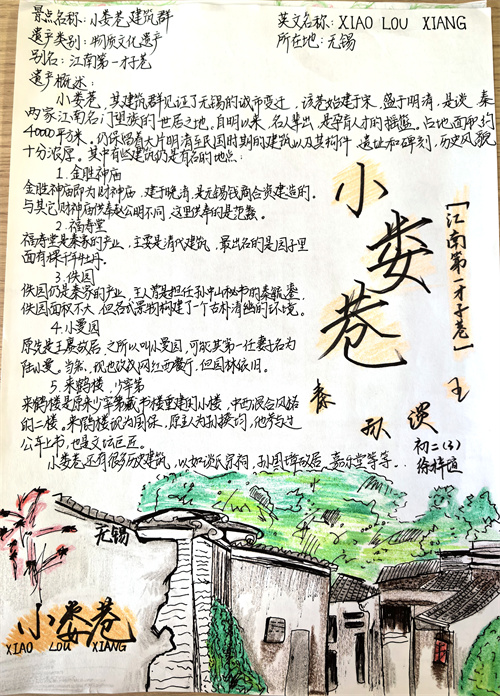 景点名称：小娄巷建筑群
英文名称：XIAO LOU XIANG
遗产类别：物质文化遗产
所在地：无锡
别名：江南第一才子巷
遗产概述：
小娄巷，其建筑群见证了无锡的城市变迁，该巷始建于宋，盛于明清，是谈、秦
两家江南名门望族的世居之地，自明以来，名人辈出，是孕育人才的摇篮。占地面积约
40000平方米。仍保留有大片明清至民国时期的建筑以及其构件、遗址和碑刻，历史风貌
十分浓厚。其中有些建筑仍是有名的地点：
1.金胜神庙
金胜神庙即为财神庙，建于晚清，是无锡钱商合资建造的。
与其它财神庙供奉赵公明不同，这里供奉的是范蠡。
2.福寿堂
福寿堂是秦家的产业，主要是清代建筑，最出名的是园子里
面有棵千年牡丹。
3.佚园
佚园仍是秦家的产业，主人曾是担任孙中山秘书的秦毓鎏，
佚园面积不大，但各式景物构建了一个古朴清幽的环境。
4.小曼园
原先是王襄故居，之所以叫小曼园，可能其第一任妻子名为
陆小曼。当然，现也改成网红西餐厅，但园林依旧。
5.来鹤楼、少宰第
来鹤楼是原来少宰第藏书楼重建的小楼，中西混合风格
的二楼。来鹤楼现为国保，原主为孙揆均，他参与过
公车上书，也是文坛巨匠。
小娄巷还有很多历史建筑，以如谈氏宗祠、孙国璋故居、嘉乐堂等等。
小娄巷
「江南第一才子巷」
秦
孙
谈
王
初二（3）
无锡
小娄巷
XIAO LOU XIANG